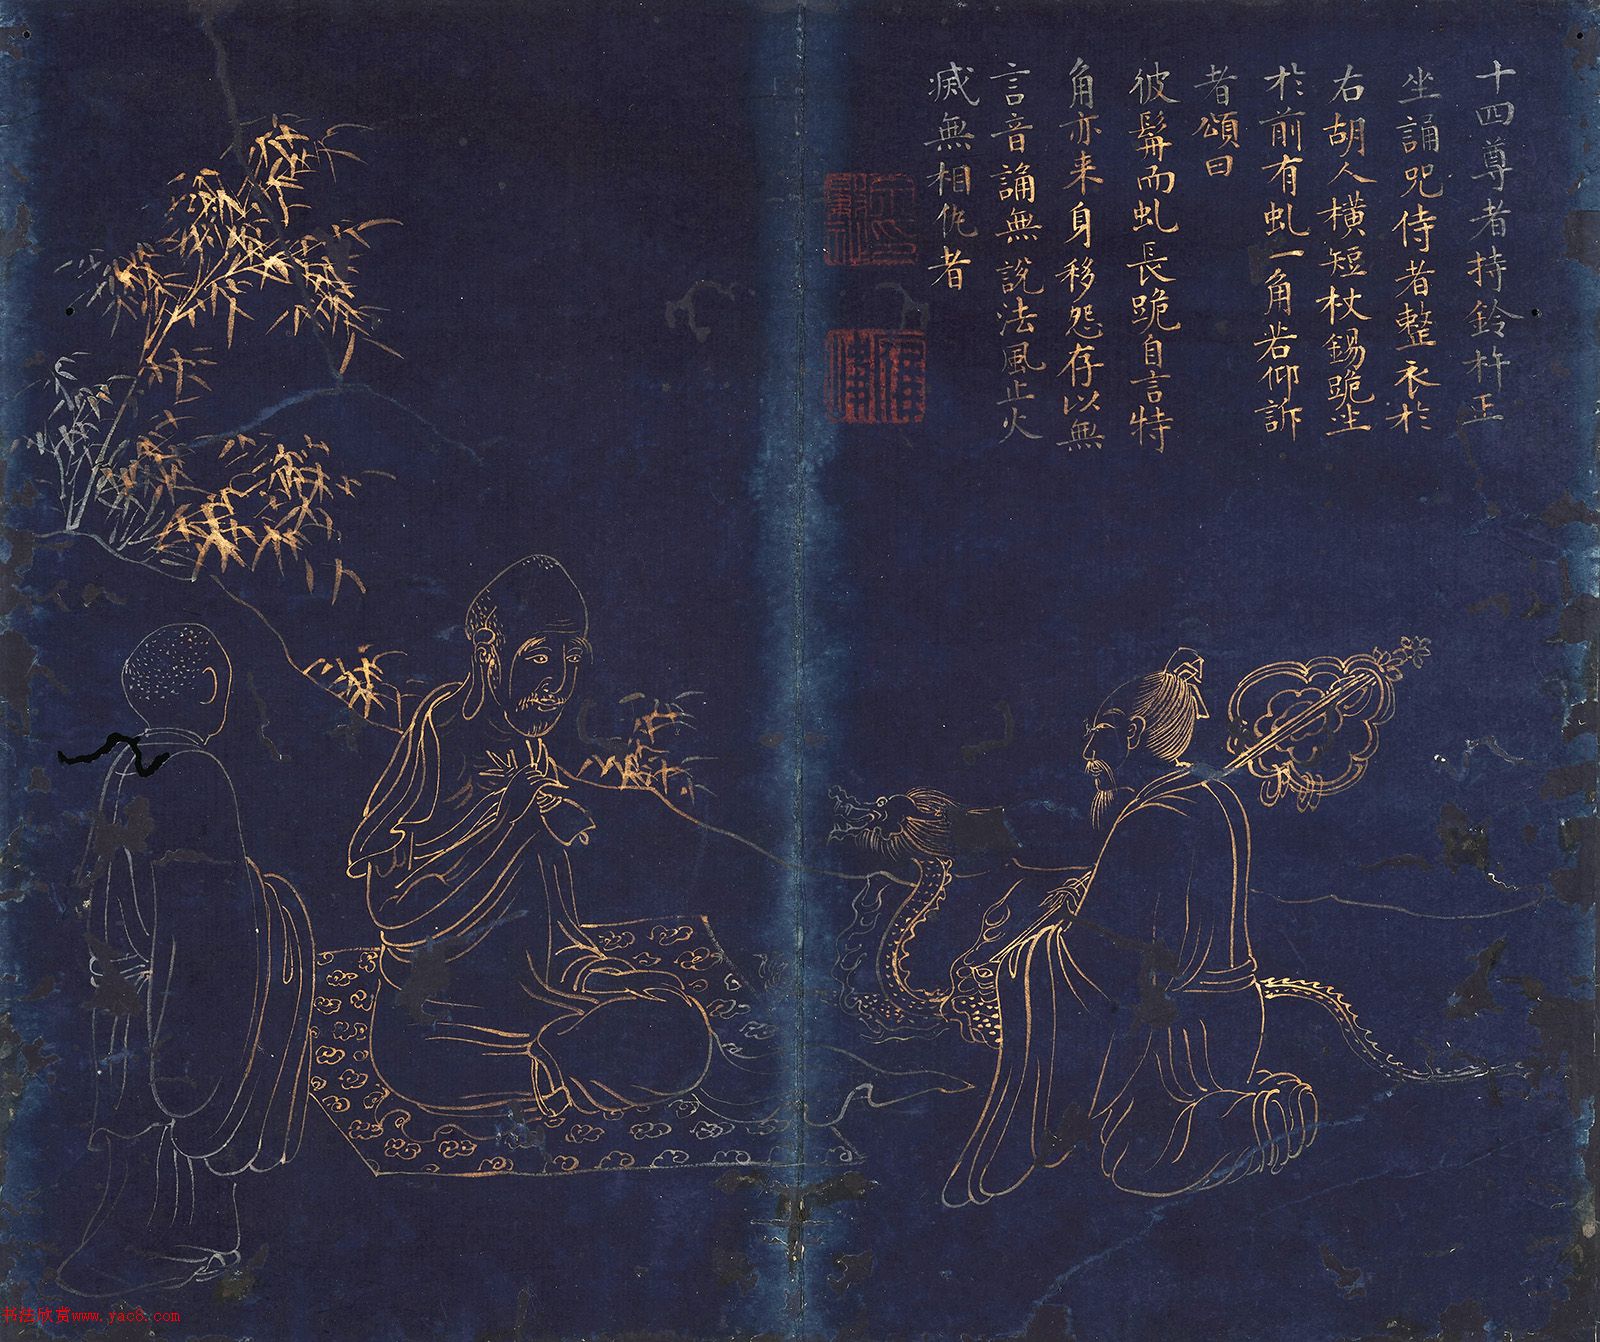 十四尊者持鈴杵正
坐誦咒侍者整衣於
右胡人橫短杖錫跪坐
於前有虬一角若仰訴
者頌曰
彼髯而虬長跪自言特
角亦來身移怨存以無
言音誦無說法風止火
滅無相仇者
书法欣赏www.yac8.com